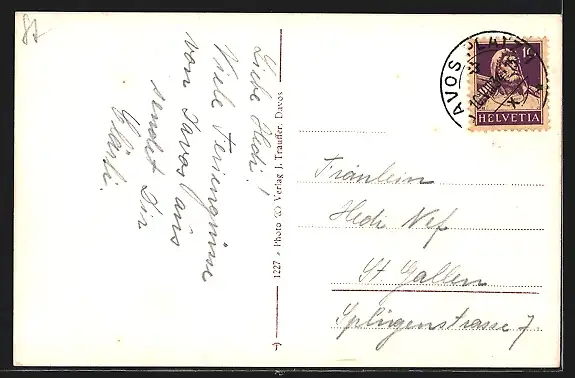 Liebe Hedi!
Viele Feriengrüsse
von Davos aus
sendet Dir
1227 • Photo & Verlag J. Trauffer, Davos
DAVOS PLATZ
10
HELVETIA
Fräulein
Hedi Nef
St. Gallen
Splügenstrasse 7